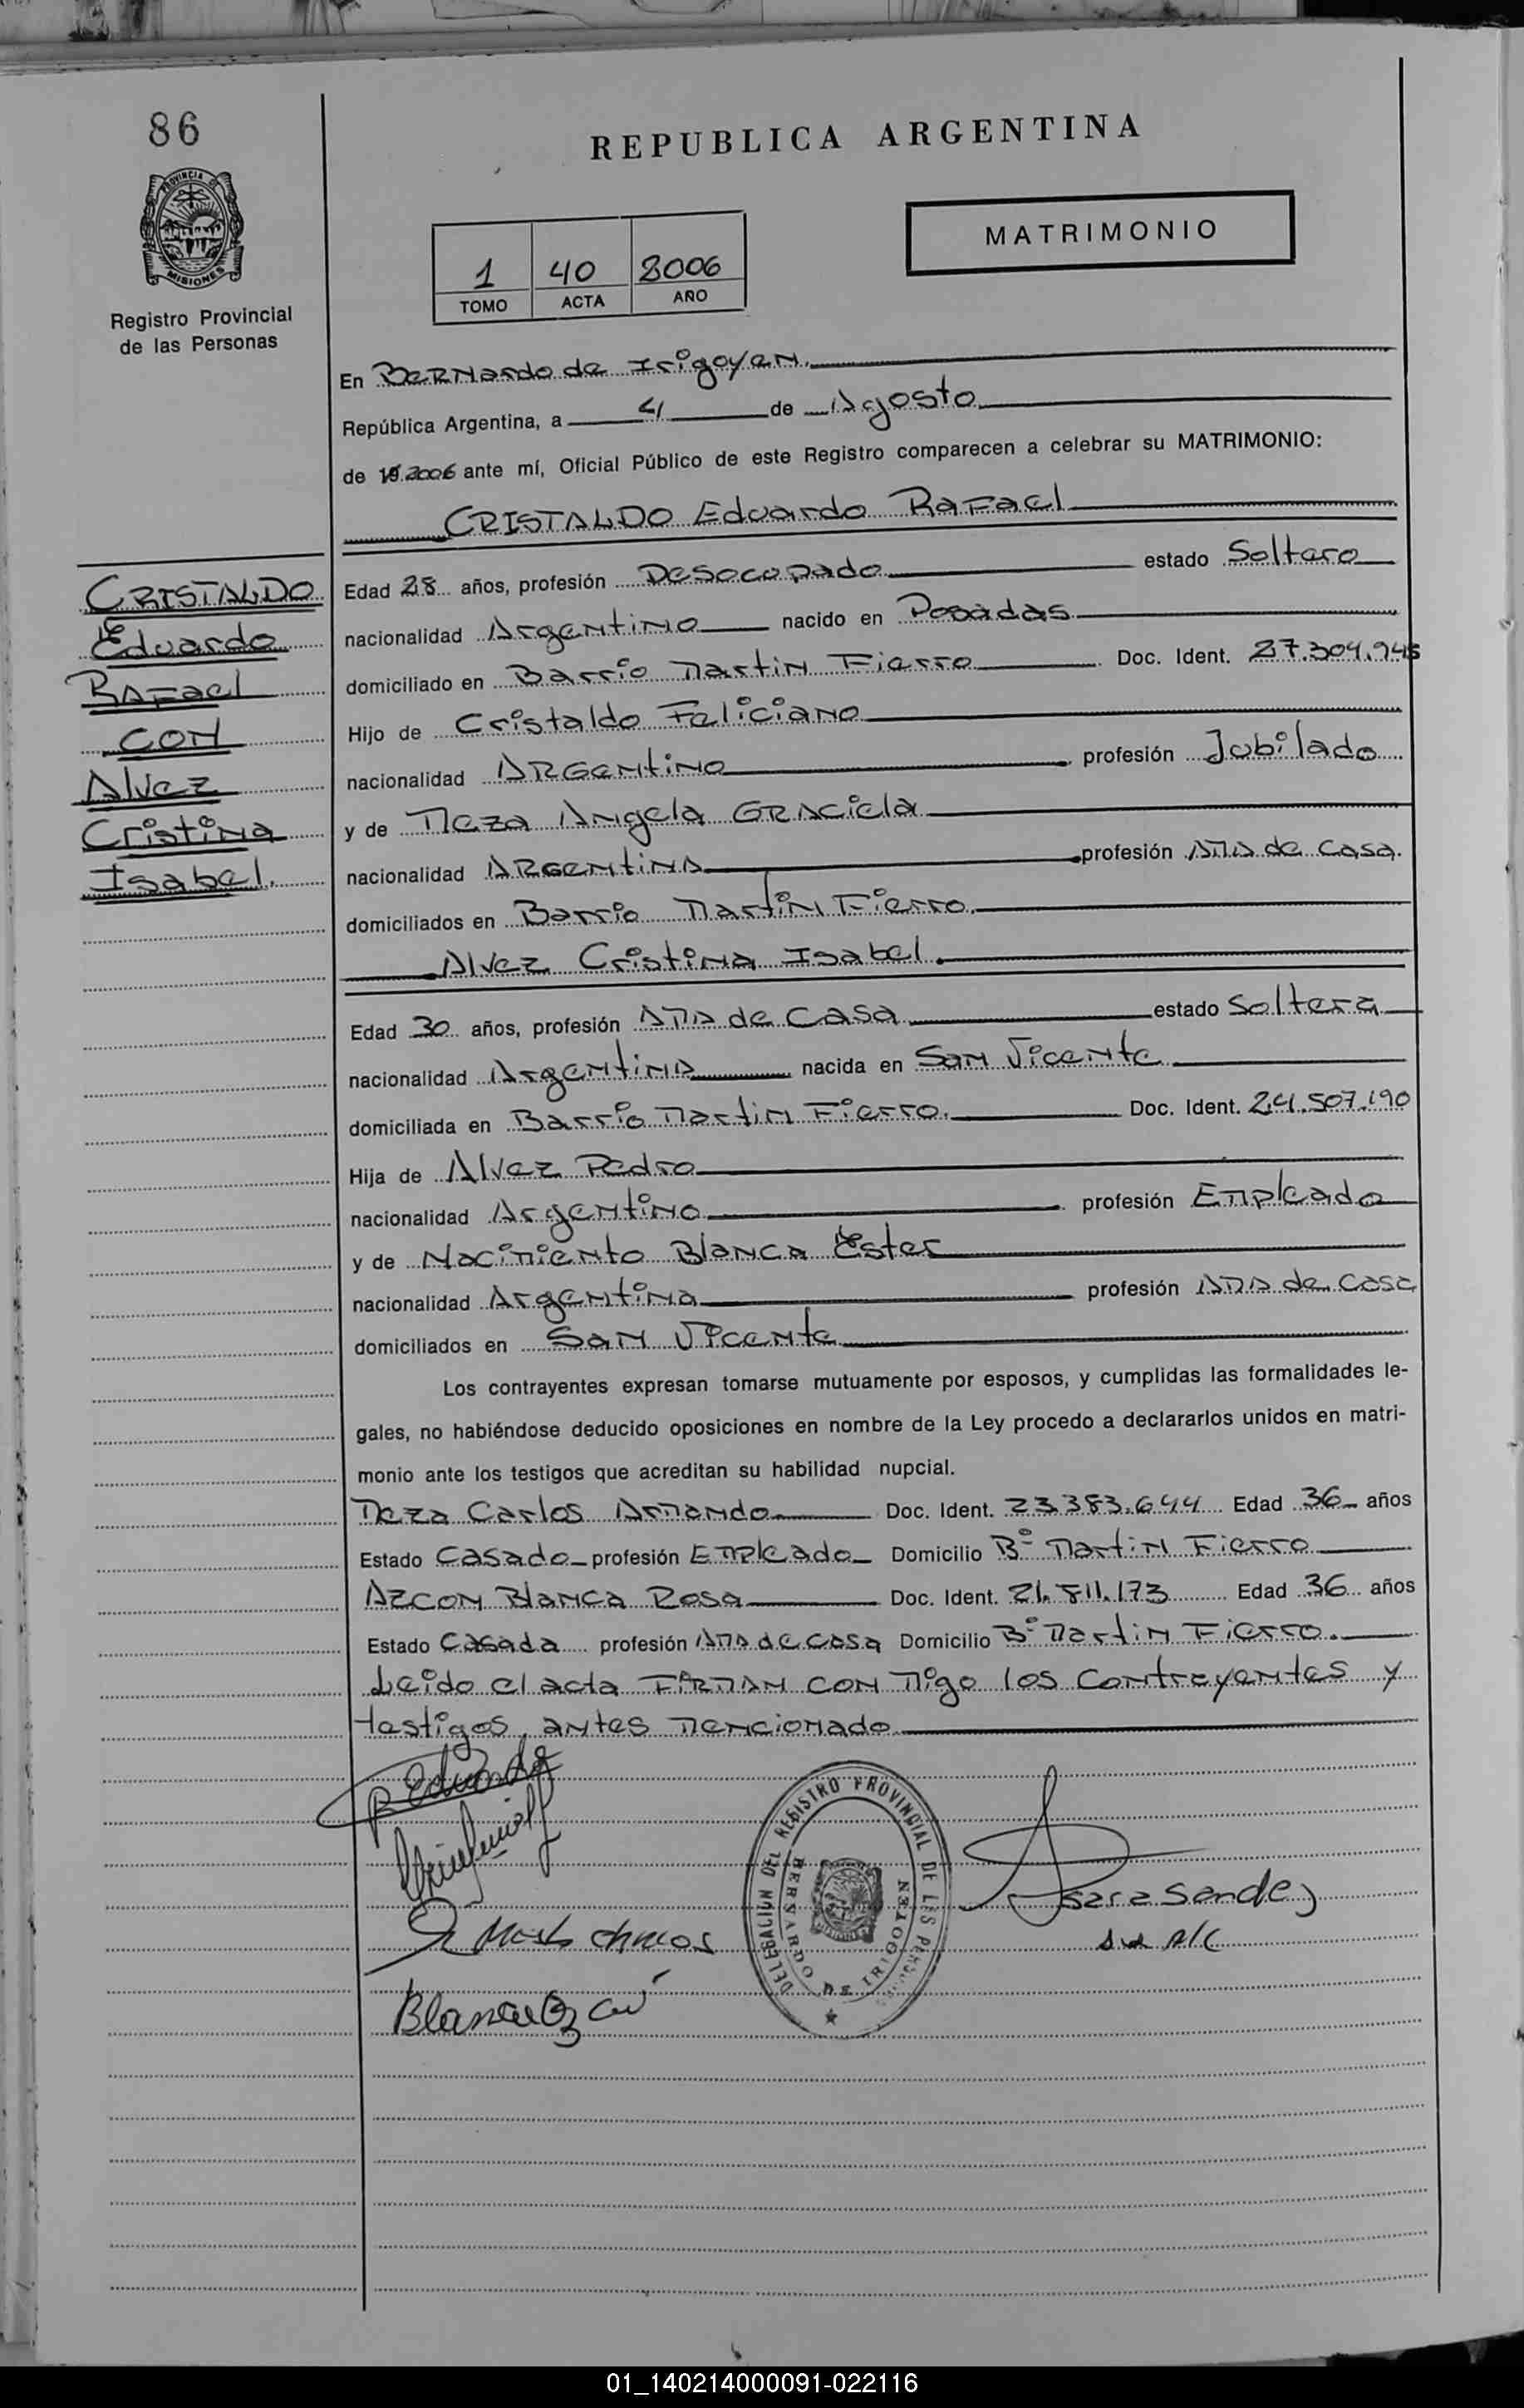 86
REPUBLICA ARGENTINA
PROVINCIA DE
MISIONES
MATRIMONIO
1 40 2006
TOMO ACTA AÑO
Registro Provincial
de las Personas
En Bernardo de Irigoyen.
República Argentina, a 4 de Agosto
de 19 2006 ante mí, Oficial Público de este Registro comparecen a celebrar su MATRIMONIO:
CRISTALDO Eduardo Rafael
CRISTALDO
Eduardo
Rafael
CON
Alvez
Cristina
Isabel.
Edad 28 años, profesión Desocupado estado Soltero
nacionalidad Argentino nacido en Posadas
domiciliado en Barrio Martin Fierro Doc. Ident. 27.304.945
Hijo de Cristaldo Feliciano
nacionalidad Argentino profesión Jubilado
y de Meza Angela Graciela
nacionalidad Argentina profesión Ama de Casa.
domiciliados en Barrio Martin Fierro.
Alvez Cristina Isabel.
Edad 30 años, profesión Ama de Casa estado Soltera
nacionalidad Argentina nacida en San Vicente
domiciliada en Barrio Martin Fierro. Doc. Ident. 24.507.190
Hija de Alvez Pedro
nacionalidad Argentino profesión Empleado
y de Nacimiento Blanca Ester
nacionalidad Argentina profesión Ama de Casa
domiciliados en San Vicente
Los contrayentes expresan tomarse mutuamente por esposos, y cumplidas las formalidades le-
gales, no habiéndose deducido oposiciones en nombre de la Ley procedo a declararlos unidos en matri-
monio ante los testigos que acreditan su habilidad nupcial.
Meza Carlos Armando Doc. Ident. 23.383.644 Edad 36 años
Estado Casado profesión Empleado Domicilio B° Martin Fierro
Azcon Blanca Rosa Doc. Ident. 21.811.173 Edad 36 años
Estado Casada profesión Ama de Casa Domicilio B° Martin Fierro.
Leido el acta Firman con migo los Contrayentes y
testigos, antes mencionado
R Eduardo
DELEGACION DEL REGISTRO PROVINCIAL DE LAS PERSONAS
BERNARDO DE IRIGOYEN
01_140214000091-022116